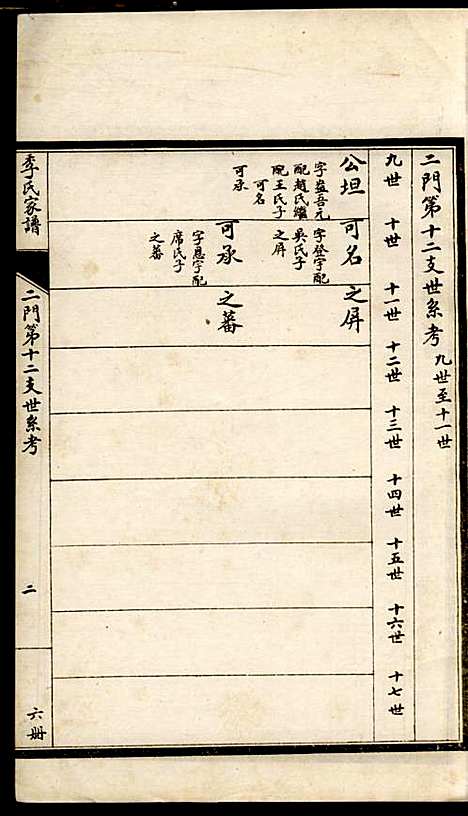 二門第十二支世系考 九世至十一世
九世 十世 十一世 十二世 十三世 十四世 十五世 十六世 十七世
公坦 可名 之屏
字益吾元
配趙氏繼
配王氏子
可名
可承
字登宇配
吳氏子
之屏
可承 之蕃
字恩宇配
席氏子
之蕃
季氏家譜
二門第十二支世系考
二
六册